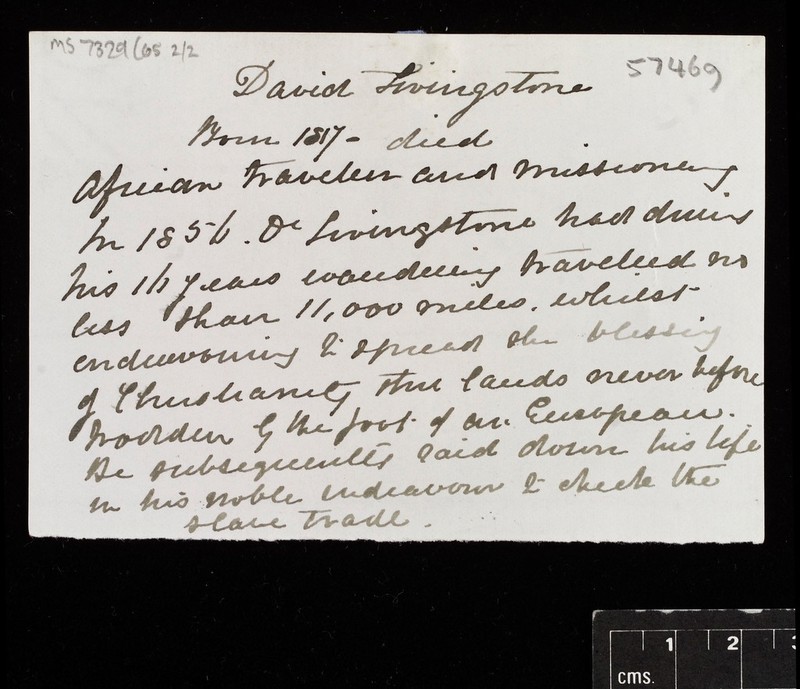 MS 7329/65 2/2
57469
David Livingstone
Born 1817 - died
African traveller and missionary
In 1856. Dr Livingstone had during
his 16 years wandering travelled no
less than 11,000 miles. whilst
endeavouring to spread the blessing
of Christianity thro lands never before
trodden by the foot of an European.
He subsequently laid down his life
in his noble endeavour to check the
slave trade.
1 2 3
cms.